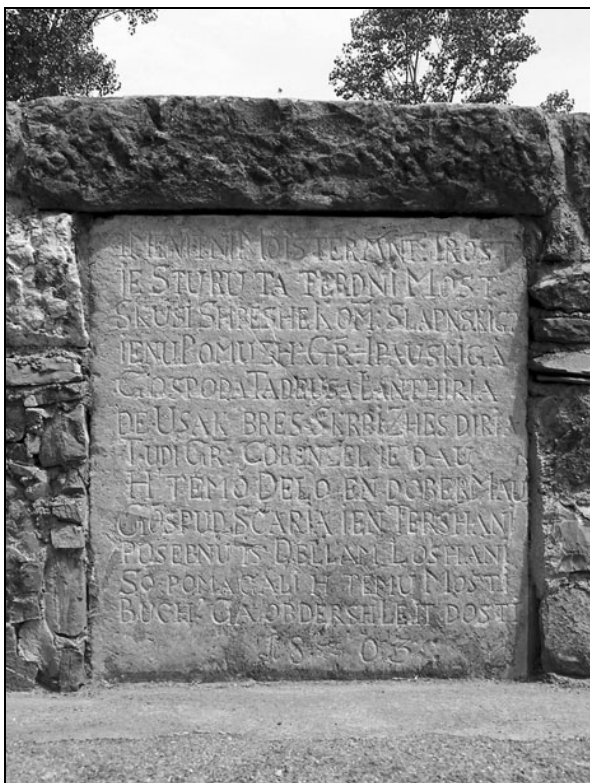 MOISTER ANT: TROST
IE STURU TA TERDNI MOST
SKUSI SHRESHE KOM: SLAPNSKIGA
IENU POMUZH GR: IPAUSKIGA
GOSPODA TADEUSA LANTHIRIA
DE USAK BRES SKRBI ZHES DIRIA
TUDI GR: COBENZEL IE DAU
H TEMO DELO EN DOBER MAU
GOSPUD SCARIA IEN TERSHANI
POSEBNU IS DELLAM LOSHANI
SO POMAGALI H TEMU MOSTI
BUCH GA OBDERSH LEIT DOSTI
18 03